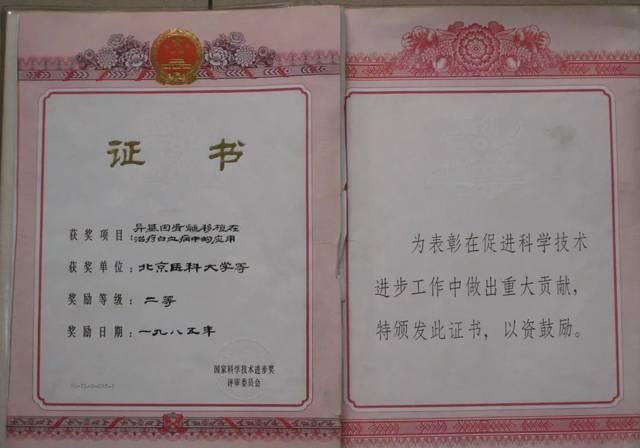 证 书
获奖项目：异基因骨髓移植在
治疗白血病中的应用
获奖单位：北京医科大学等
奖励等级：二等
奖励日期：一九八五年
国家科学技术进步奖
评审委员会
为表彰在促进科学技术
进步工作中做出重大贡献，
特颁发此证书，以资鼓励。